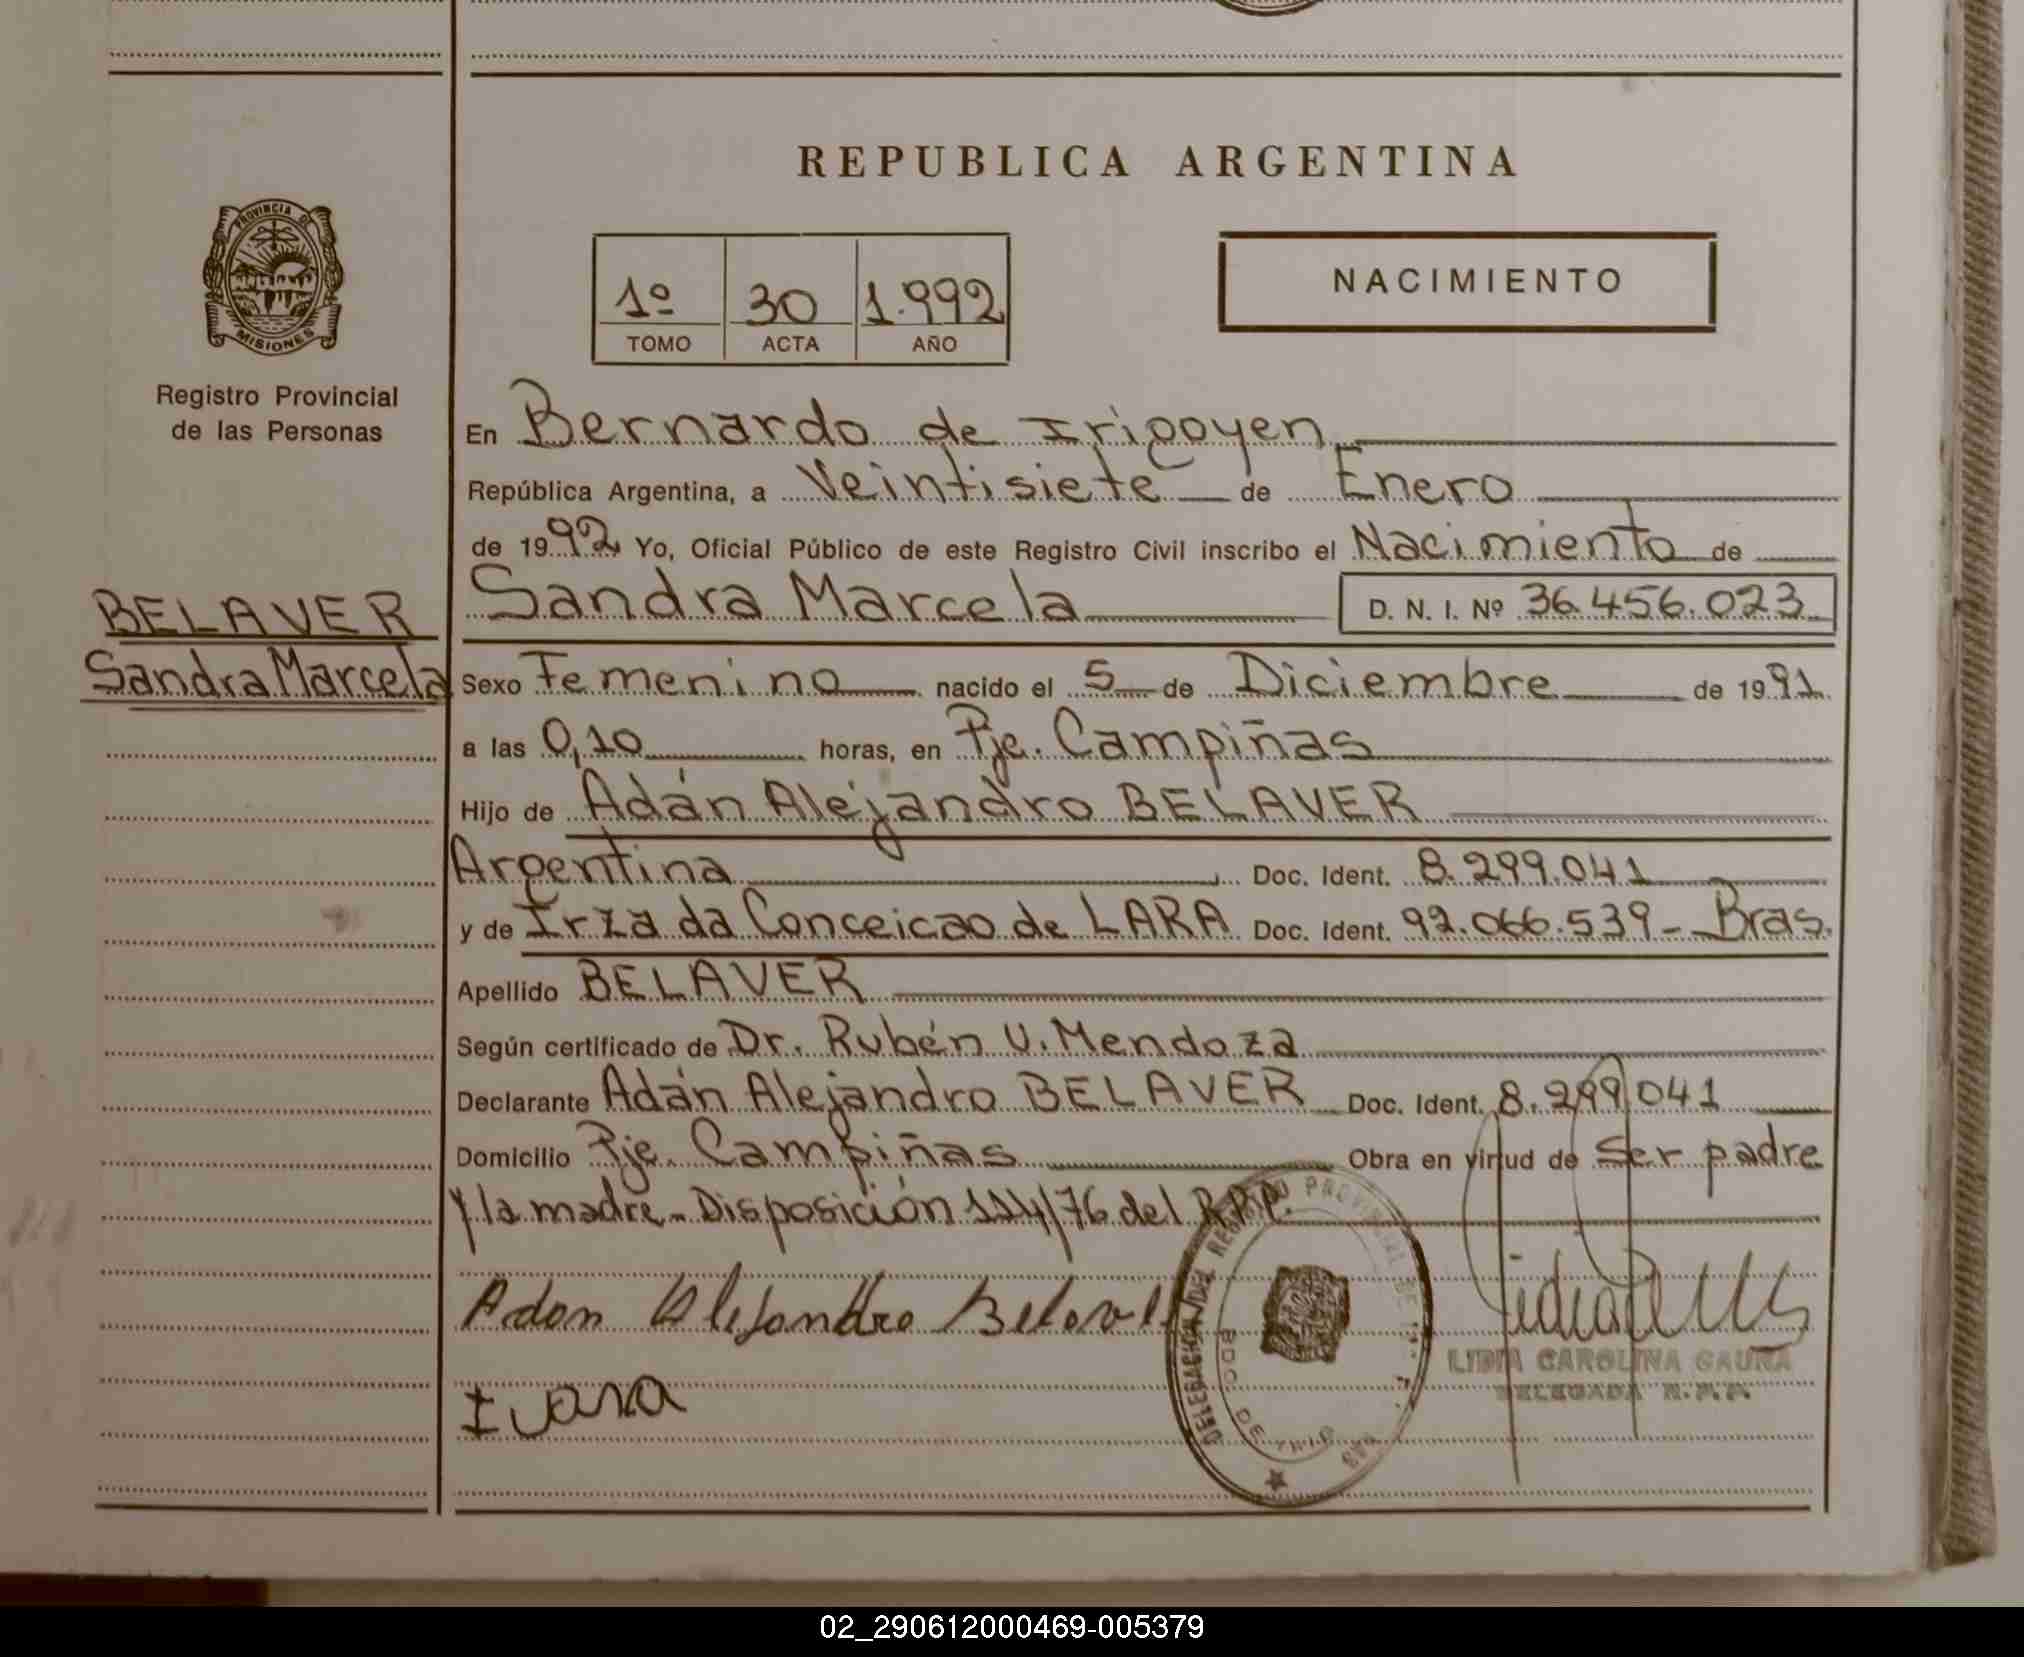 REPUBLICA ARGENTINA
PROVINCIA DE
MISIONES
Registro Provincial
de las Personas
1º 30 1.992
TOMO ACTA AÑO
NACIMIENTO
En Bernardo de Irigoyen
República Argentina, a Veintisiete de Enero
de 1992 Yo, Oficial Público de este Registro Civil inscribo el Nacimiento de
Sandra Marcela D. N. I. Nº 36.456.023
BELAVER
Sandra Marcela
Sexo Femenino nacido el 5 de Diciembre de 1991
a las 0,10 horas, en Pje. Campiñas
Hijo de Adán Alejandro BELAVER
Argentina Doc. Ident. 8.299.041
y de Irza da Conceicao de LARA Doc. Ident. 92.066.539- Bras.
Apellido BELAVER
Según certificado de Dr. Rubén U. Mendoza
Declarante Adán Alejandro BELAVER Doc. Ident. 8.299.041
Domicilio Pje. Campiñas Obra en virtud de Ser padre
y la madre - Disposición 114/76 del R.P.P.
Adan Alejandro Belaver
DELEGACION DEL REGISTRO PROVINCIAL DE
BDO. DE IRIG
LIDIA CAROLINA GAUNA
DELEGADA R.P.P.
02_290612000469-005379